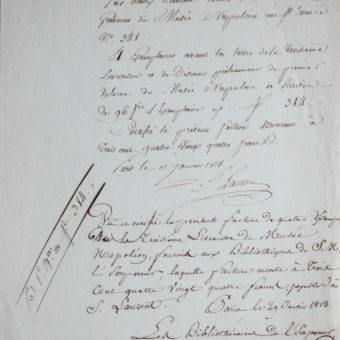 du Musée Napoléon
N° 341
4 Exemplaires avant la lettre de la Troisième
Livraison et du Discours préliminaire du premier
Volume du Musée Napoléon à raison
de 96 l'Exemplaire
Certifié la présente facture Montant à
Trois cent quatre Vingt quatre francs
Paris le 11 Janvier 1813.
Laurent
Vu et certifié la présente facture de quatre
de la Troisième Livraison du Musée
Napoléon, fournit aux Bibliothèques de S. M.
L'Empereur, laquelle facture monte à Trois
cent quatre vingt quatre francs, payables à
S. Laurent.
Paris le 29 Janvier 1813.
Les Bibliothécaires de l'Empereur